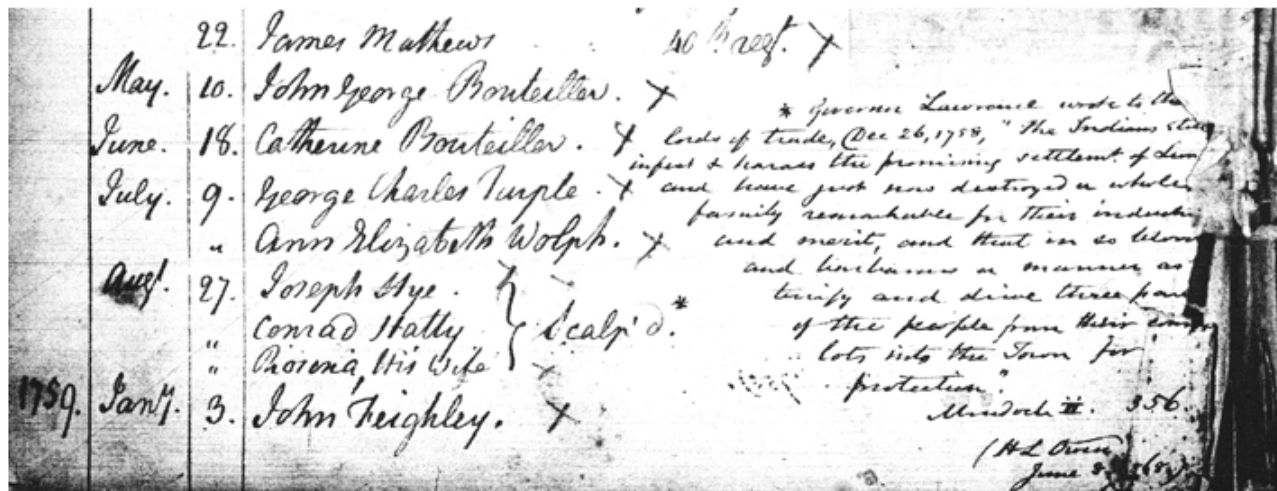 22. James Mathews 40th regt. x
May. 10. John George Bouteiller. x
June. 18. Catherine Bouteiller. x
July. 9. George Charles Turple. x
" Ann Elizabeth Wolph. x
Augt. 27. Joseph Stye.
" Conrad Hatty } Scalp'd.*
" Rosina, His Wife
1759. Jany. 3. John Feighley. x
* Governor Lawrence wrote to the
lords of trade, (Dec 26, 1758, "The Indians
infest & harass the promising settlemt. of
and have just now destroyed a whole
family remarkable for their
and merit, and that in so
and barbarous a manner as
terrify and drive three
of the people from their
lots into the Town for
protection".
Murdoch II. 356.
(H L Owen
June 8